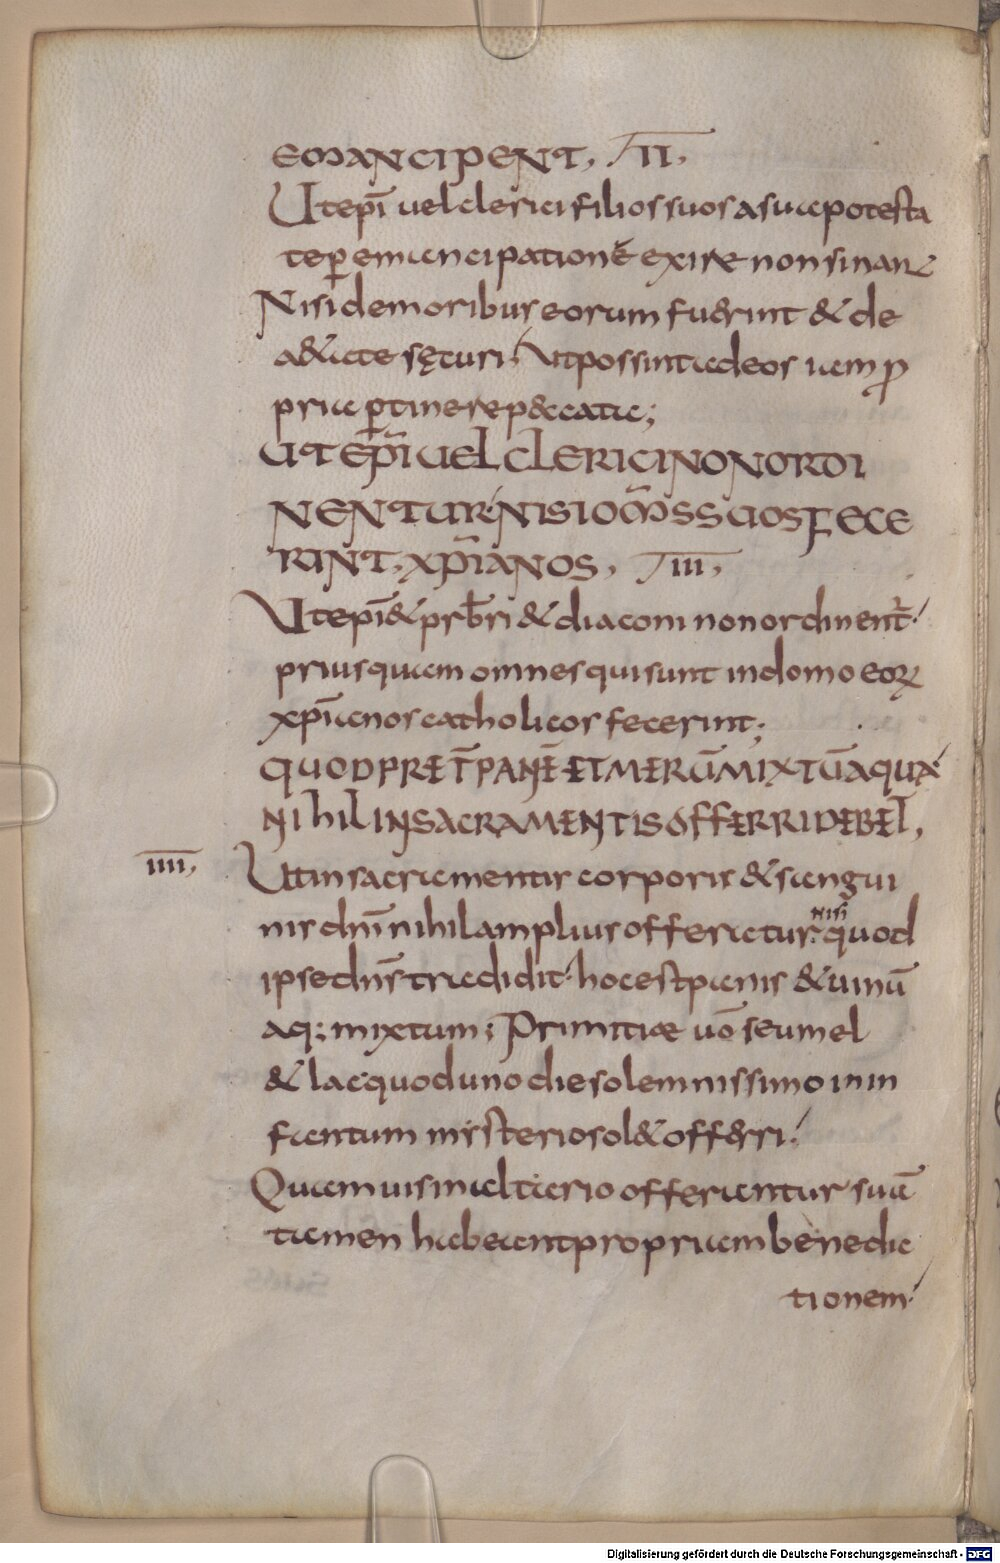 EMANCIPENT, II,
Ut ep̄i uel clerici filios suos a sua potesta
te p̱ emancipationē exire non sinant
Nisi de moribus eorum fuerint & de
a&ate sęcuri, Ut possint ad eos iam p̱
pria p̱tinere peccata;
UT EP̄I UEL CLERICI NON ORDI
NENTUR, NISI OM̄S SUOS FECE
RINT, XP̄IANOS, III,
Ut ep̄i & prb̄ri & diaconi non ordinent̄
priusquam omnes qui sunt in domo eoꝝ
xp̄ianos catholicos fecerint;
QUOD PRET̄ PANĒ ET MERŪ MIXTŪ AQUA
NIHIL IN SACRAMENTIS OFFERRI DEBET,
IIII, Ut in sacramentis corporis & sangui
nis dn̄i nihil amplius offeratur nisi quod
ipse dn̄s tradidit, hoc est panis & uinū
aq; mixtum; Primitiae uō seu mel
& lac quod uno die solemnissimo in in
fantum mysterio sol& offerri,
Quamuis in altario offerantur suā
tamen habeant propriam benedic
tionem,
Digitalisierung gefördert durch die Deutsche Forschungsgemeinschaft - DFG